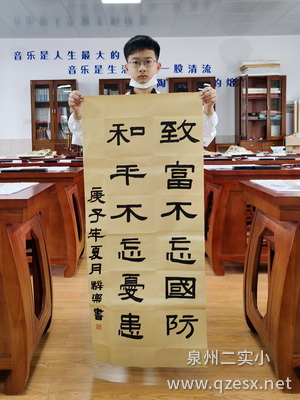 音乐是人生最大的
音乐是生活 一股清流
陶 的熔
致富不忘國防
和平不忘憂患
庚子年夏月
書
泉州二实小
www.qzesx.net